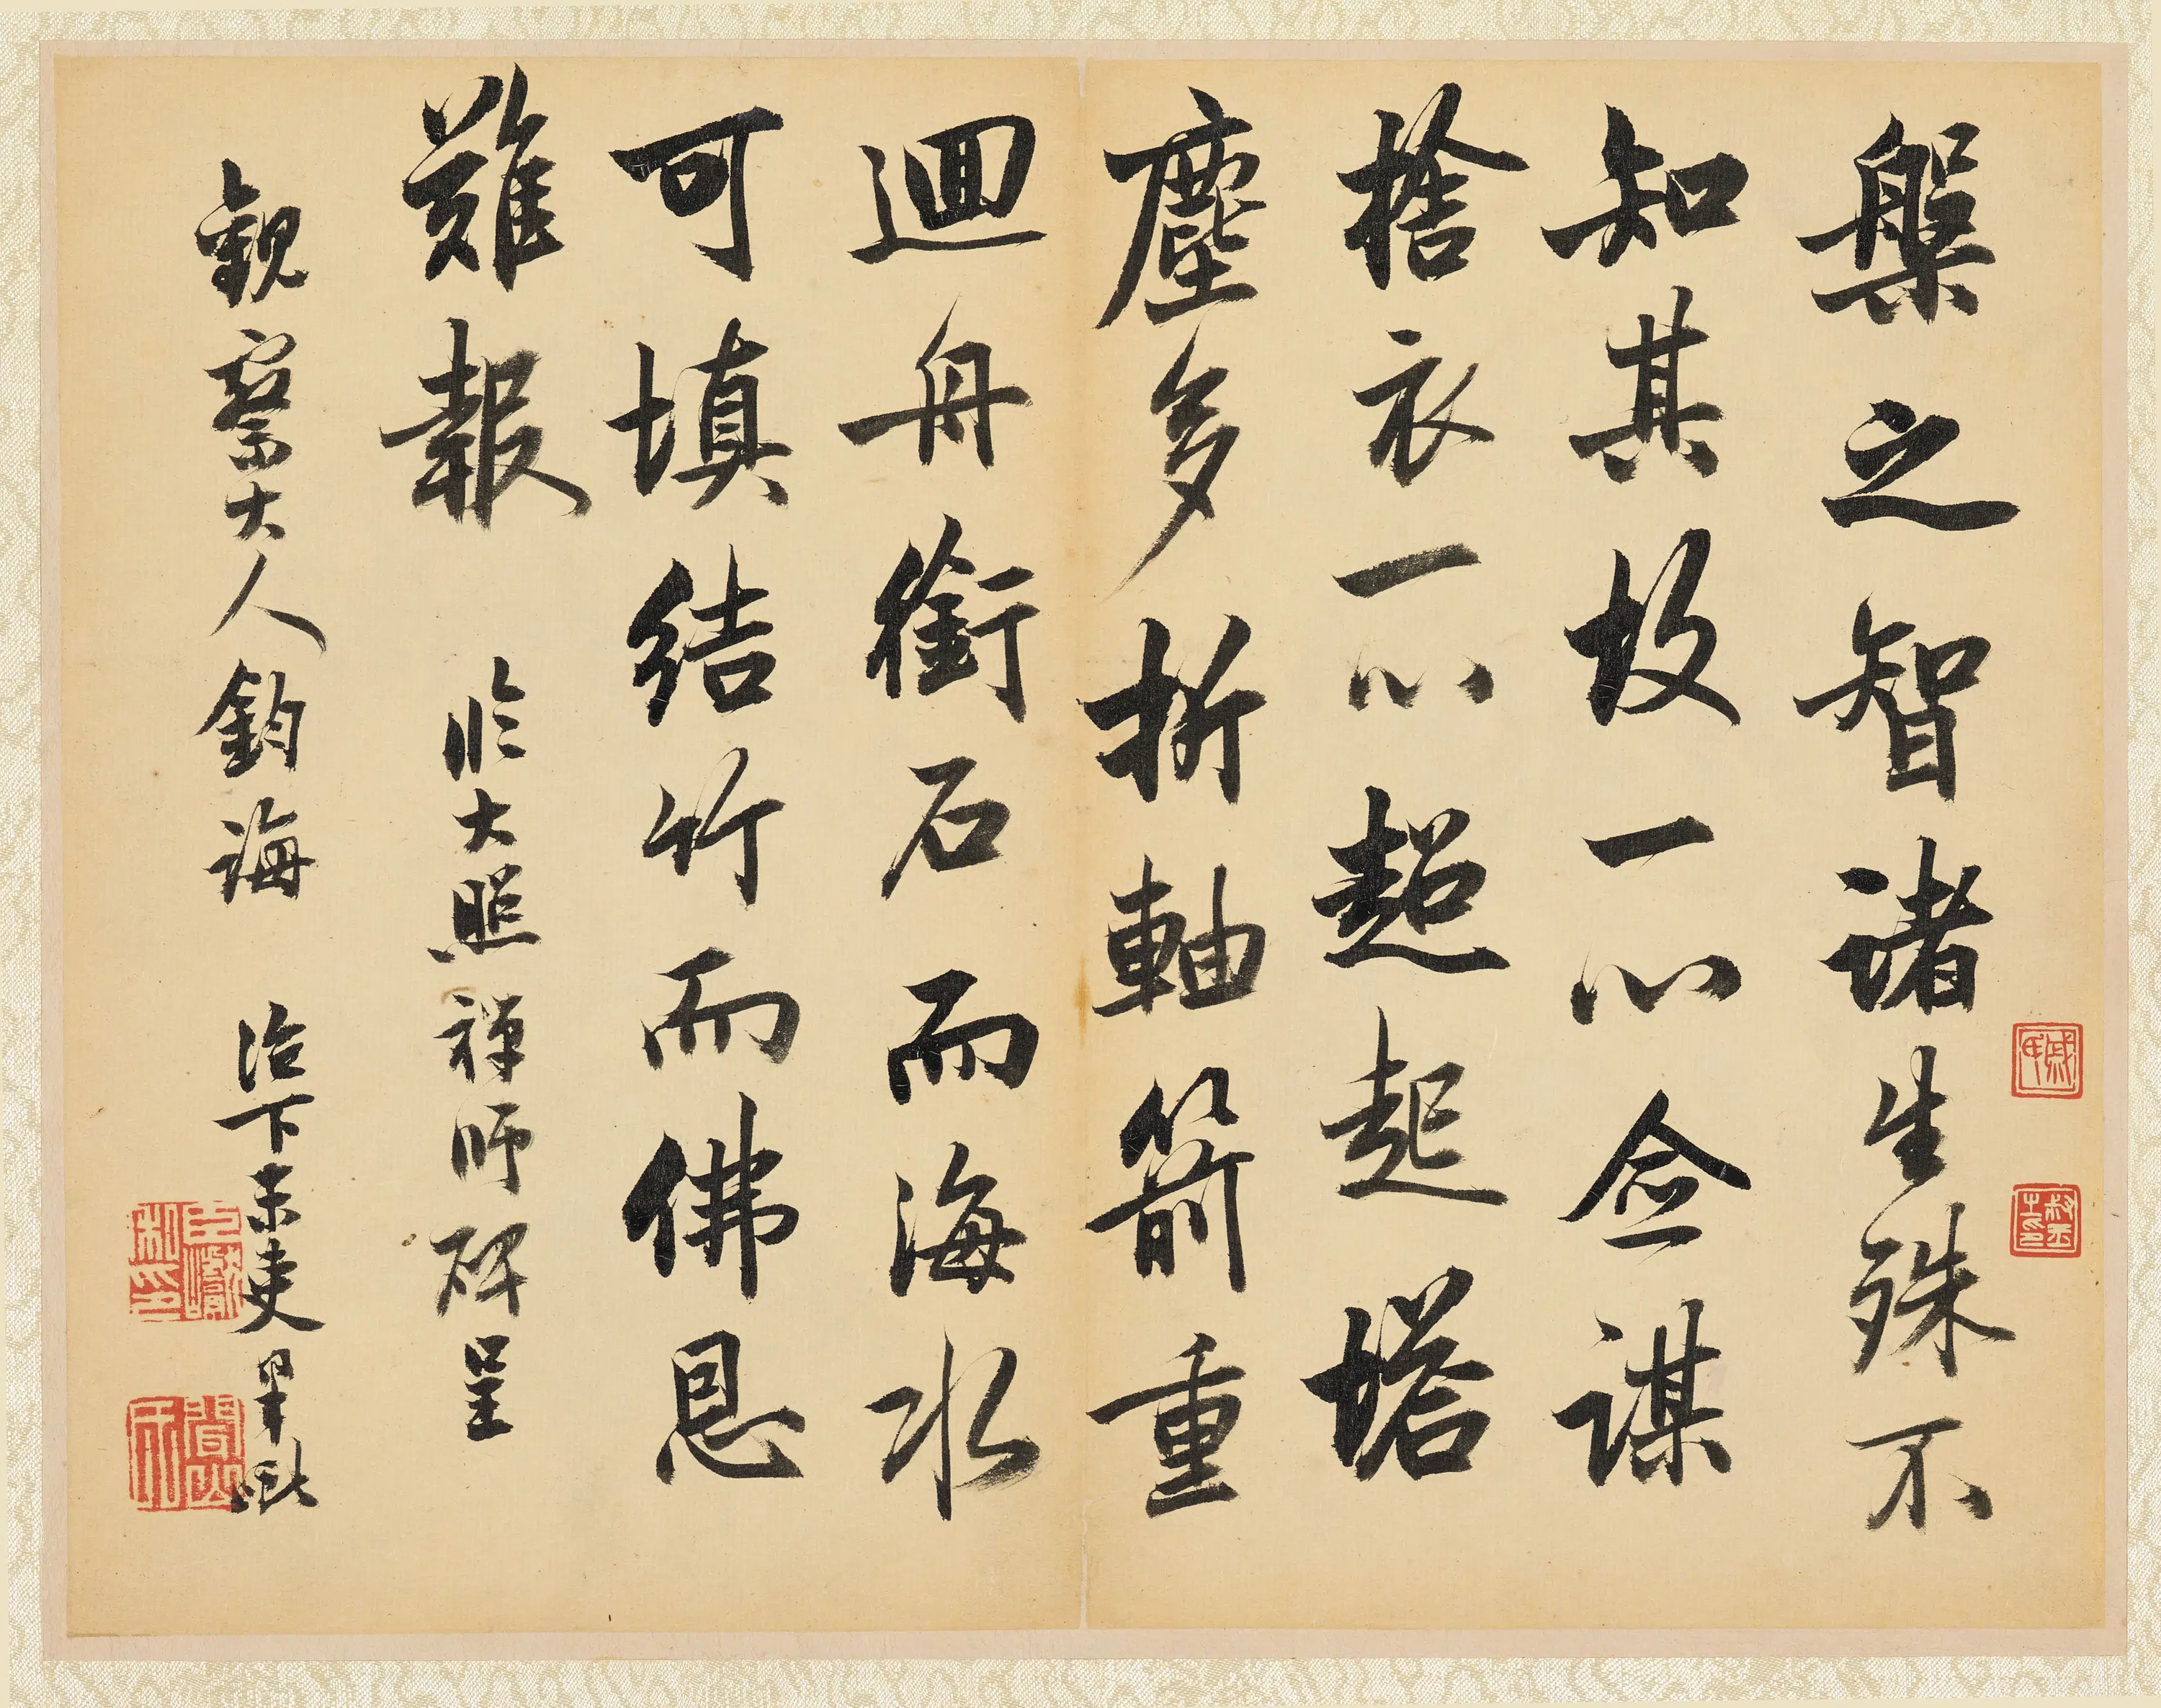 槃之智諸生殊不
知其故一心僉謀
捨衣一心超起塔
塵多折軸箭重
迴舟銜石而海水
可填結竹而佛恩
難報 臨大照禪師碑呈
觀察大人鈞誨 治下末吏